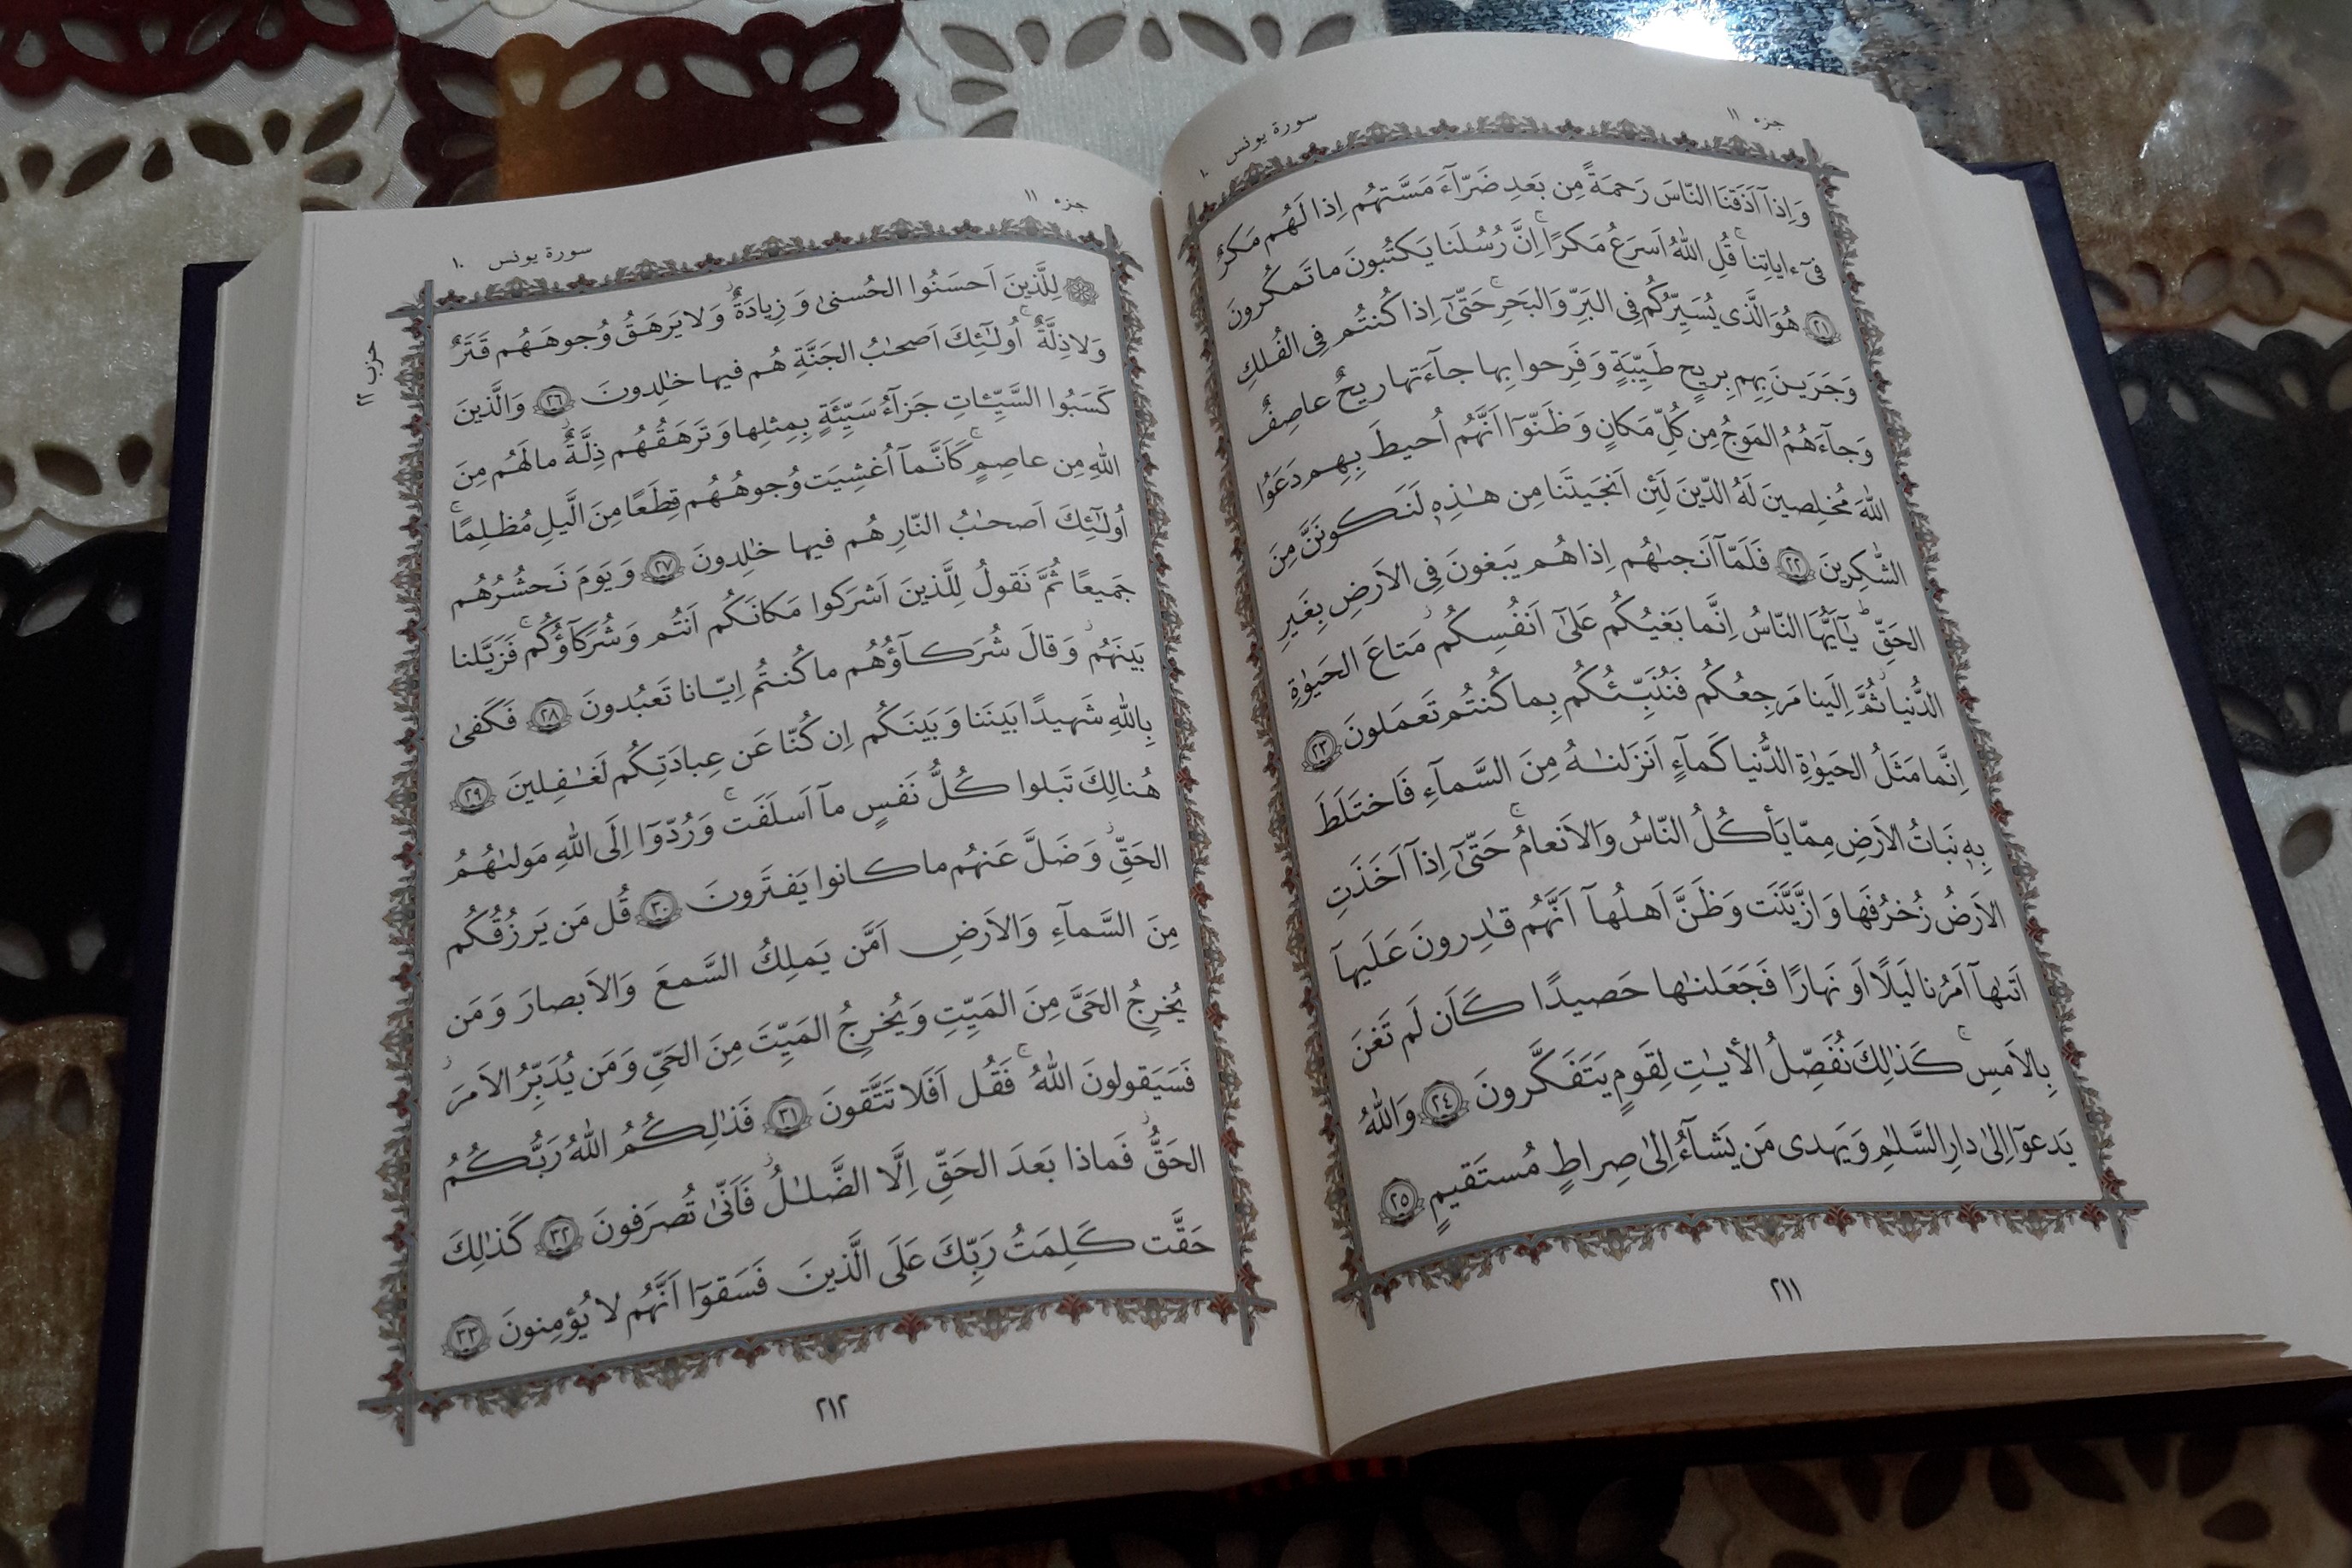 جزء ١١
سورة يونس ١٠
وَاِذآ اَذَقنَا النّاسَ رَحمَةً مِن بَعدِ ضَرّآءَ مَسَّتهُم اِذا لَهُم مَكرٌ
فىٓ ءاياتِنا ۚ قُلِ اللّٰهُ اَسرَعُ مَكرًا ۚ اِنَّ رُسُلَنا يَكتُبونَ ما تَمكُرونَ
﴿٢١﴾ هُوَ الَّذى يُسَيِّرُكُم فِى البَرِّ وَالبَحرِ ۖ حَتّىٰٓ اِذا كُنتُم فِى الفُلكِ
وَجَرَينَ بِهِم بِريحٍ طَيِّبَةٍ وَفَرِحوا بِها جآءَتها ريحٌ عاصِفٌ
وَجآءَهُمُ المَوجُ مِن كُلِّ مَكانٍ وَظَنّوٓا اَنَّهُم اُحيطَ بِهِم دَعَوُا
اللّٰهَ مُخلِصينَ لَهُ الدّينَ لَئِن اَنجَيتَنا مِن هٰذِهٖ لَنَكونَنَّ مِنَ
الشّٰكِرينَ ﴿٢٢﴾ فَلَمّآ اَنجىٰهُم اِذا هُم يَبغونَ فِى الاَرضِ بِغَيرِ
الحَقِّ ۗ يٰٓاَيُّهَا النّاسُ اِنَّما بَغيُكُم عَلىٰٓ اَنفُسِكُم ۖ مَتاعَ الحَيوٰةِ
الدُّنيا ۖ ثُمَّ اِلَينا مَرجِعُكُم فَنُنَبِّئُكُم بِما كُنتُم تَعمَلونَ ﴿٢٣﴾
اِنَّما مَثَلُ الحَيوٰةِ الدُّنيا كَمآءٍ اَنزَلنٰهُ مِنَ السَّمآءِ فَاختَلَطَ
بِهٖ نَباتُ الاَرضِ مِمّا يَأكُلُ النّاسُ وَالاَنعامُ ۚ حَتّىٰٓ اِذآ اَخَذَتِ
الاَرضُ زُخرُفَها وَازَّيَّنَت وَظَنَّ اَهلُهآ اَنَّهُم قٰدِرونَ عَلَيهآ
اَتىٰهآ اَمرُنا لَيلًا اَو نَهارًا فَجَعَلنٰها حَصيدًا كَاَن لَم تَغنَ
بِالاَمسِ ۚ كَذٰلِكَ نُفَصِّلُ الأيٰتِ لِقَومٍ يَتَفَكَّرونَ ﴿٢٤﴾ وَاللّٰهُ
يَدعوٓا اِلىٰ دارِ السَّلٰمِ وَيَهدى مَن يَشآءُ اِلىٰ صِراطٍ مُستَقيمٍ ﴿٢٥﴾
٢١١
جزء ١١
سورة يونس ١٠
حزب ٢٢
۞ لِلَّذينَ اَحسَنُوا الحُسنىٰ وَزِيادَةٌ ۖ وَلا يَرهَقُ وُجوهَهُم قَتَرٌ
وَلا ذِلَّةٌ ۚ اُولٰٓئِكَ اَصحٰبُ الجَنَّةِ هُم فيها خٰلِدونَ ﴿٢٦﴾ وَالَّذينَ
كَسَبُوا السَّيِّئاتِ جَزآءُ سَيِّئَةٍ بِمِثلِها وَتَرهَقُهُم ذِلَّةٌ ۖ ما لَهُم مِنَ
اللّٰهِ مِن عاصِمٍ ۖ كَاَنَّمآ اُغشِيَت وُجوهُهُم قِطَعًا مِنَ الَّيلِ مُظلِمًا ۚ
اُولٰٓئِكَ اَصحٰبُ النّارِ هُم فيها خٰلِدونَ ﴿٢٧﴾ وَيَومَ نَحشُرُهُم
جَميعًا ثُمَّ نَقولُ لِلَّذينَ اَشرَكوا مَكانَكُم اَنتُم وَشُرَكآؤُكُم ۚ فَزَيَّلنا
بَينَهُم ۖ وَقالَ شُرَكآؤُهُم ما كُنتُم اِيّانا تَعبُدونَ ﴿٢٨﴾ فَكَفىٰ
بِاللّٰهِ شَهيدًا بَينَنا وَبَينَكُم اِن كُنّا عَن عِبادَتِكُم لَغٰفِلينَ ﴿٢٩﴾
هُنالِكَ تَبلوا كُلُّ نَفسٍ مآ اَسلَفَت ۚ وَرُدّوٓا اِلَى اللّٰهِ مَولىٰهُمُ
الحَقِّ ۖ وَضَلَّ عَنهُم ما كانوا يَفتَرونَ ﴿٣٠﴾ قُل مَن يَرزُقُكُم
مِنَ السَّمآءِ وَالاَرضِ اَمَّن يَملِكُ السَّمعَ وَالاَبصارَ وَمَن
يُخرِجُ الحَىَّ مِنَ المَيِّتِ وَيُخرِجُ المَيِّتَ مِنَ الحَىِّ وَمَن يُدَبِّرُ الاَمرَ ۚ
فَسَيَقولونَ اللّٰهُ ۚ فَقُل اَفَلا تَتَّقونَ ﴿٣١﴾ فَذٰلِكُمُ اللّٰهُ رَبُّكُمُ
الحَقُّ ۖ فَماذا بَعدَ الحَقِّ اِلَّا الضَّلٰلُ ۖ فَاَنّىٰ تُصرَفونَ ﴿٣٢﴾ كَذٰلِكَ
حَقَّت كَلِمَتُ رَبِّكَ عَلَى الَّذينَ فَسَقوٓا اَنَّهُم لا يُؤمِنونَ ﴿٣٣﴾
٢١٢